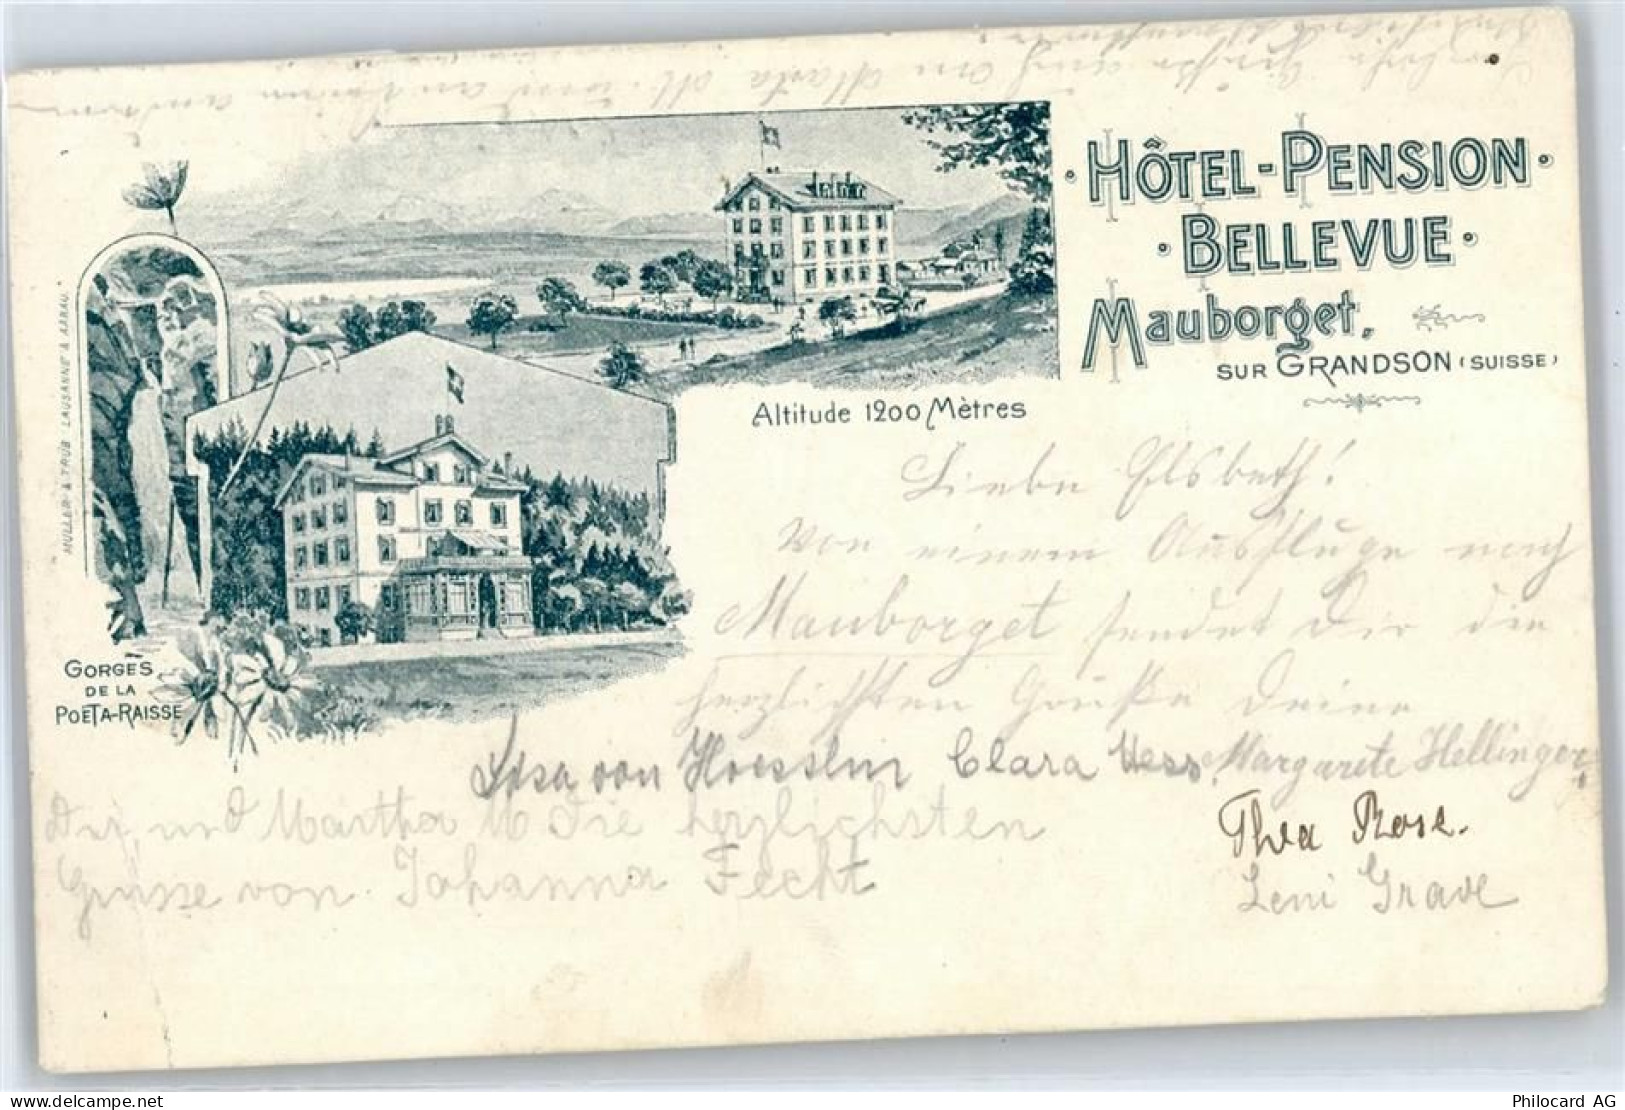 HÔTEL-PENSION
BELLEVUE
Mauborget.
SUR GRANDSON (SUISSE)
Altitude 1200 Mètres
MÜLLER & TRÜB LAUSANNE & AARAU.
GORGES
DE LA
POËTA-RAISSE
Liebe Elsbeth!
Von einem Ausfluge nach
Mauborget sendet Dir die
herzlichsten Grüße Deine
von Hoesslin Clara Hess Margarete Hellinger
Dir und Martha M die herzlichsten
Grüsse von Johanna Fecht
Thea Rose.
Leni Grave
Grüße auch an Marta M. und an
Philocard AG